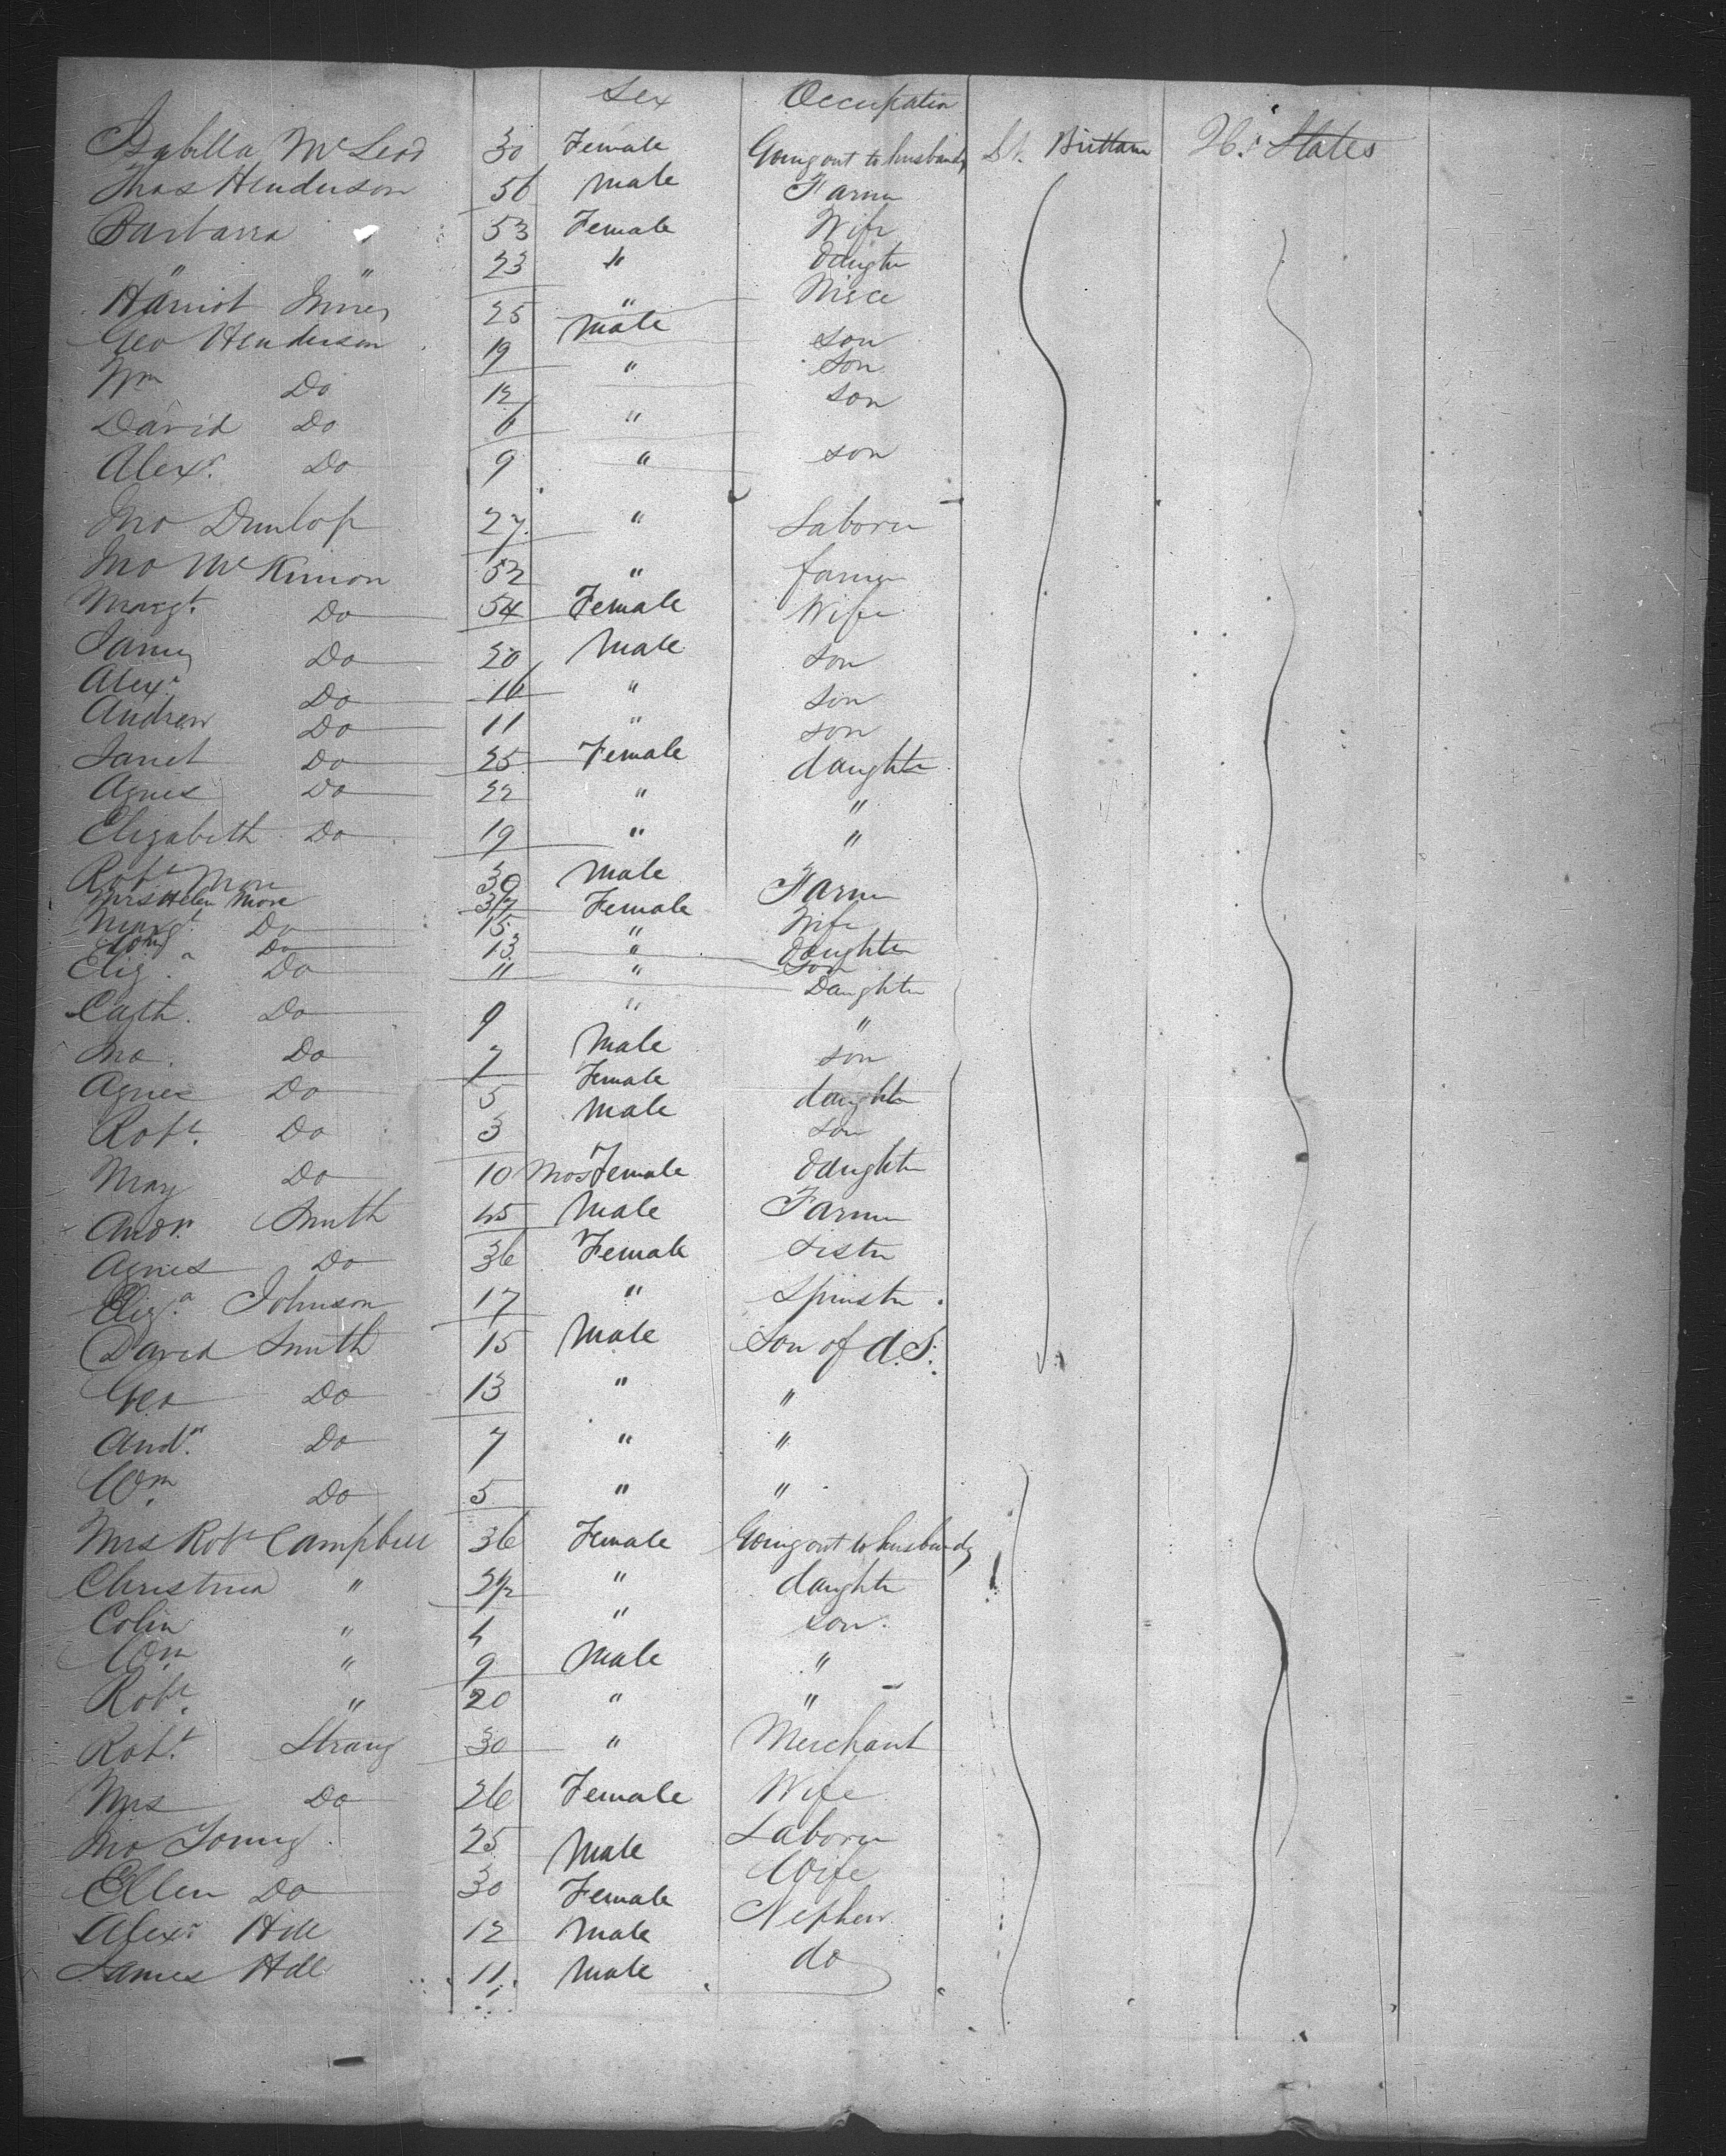 Sex Occupation
Isabella McLeod 30 Female Going out to husband Gt. Brittain U. States
Thos Henderson 56 Male Farmer
Barbarra " 53 Female Wife
" " 23 " Daughter
Harriot Innes 25 " Niece
Geo Henderson 19 Male son
Wm Do 12 " son
David Do 6 " son
Alexr. Do 9 " son
Jno Dunlop 27 " Laborer
Jno McKinnon 52 " farmer
Margt. Do 54 Female Wife
James Do 20 Male son
Alexr. Do 16 " son
Andrew Do 11 " son
Janet Do 25 Female daughter
Agnes Do 22 " "
Elizabeth Do 19 " "
Robt More 39 Male Farmer
Mrs Helen More 37 Female Wife
Margt. Do 15 " Daughter
Do 13 " son
Eliza. Do 11 " Daughter
Cath. Do 9 " "
Jno. Do 7 Male son
Agnes Do 5 Female daughter
Robt. Do 3 Male son
May Do 10 Mos Female Daughter
Andr. Smith 45 Male Farmer
Agnes Do 36 Female Sister
Eliza. Johnson 17 " Spinster
David Smith 15 Male Son of A.S.
Geo Do 13 " "
Andr. Do 7 " "
Wm Do 5 " "
Mrs Robt Campbell 36 Female Going out to husband
Christina " 2/12 " daughter
Colin " 4 " son
Wm " 9 Male "
Robt. " 20 " "
Robt. Strang 30 " Merchant
Mrs Do 26 Female Wife
Jno Young 25 Male Laborer
Ellen Do 30 Female Wife
Alexr Hill 12 Male Nephew
James Hill 11 Male do